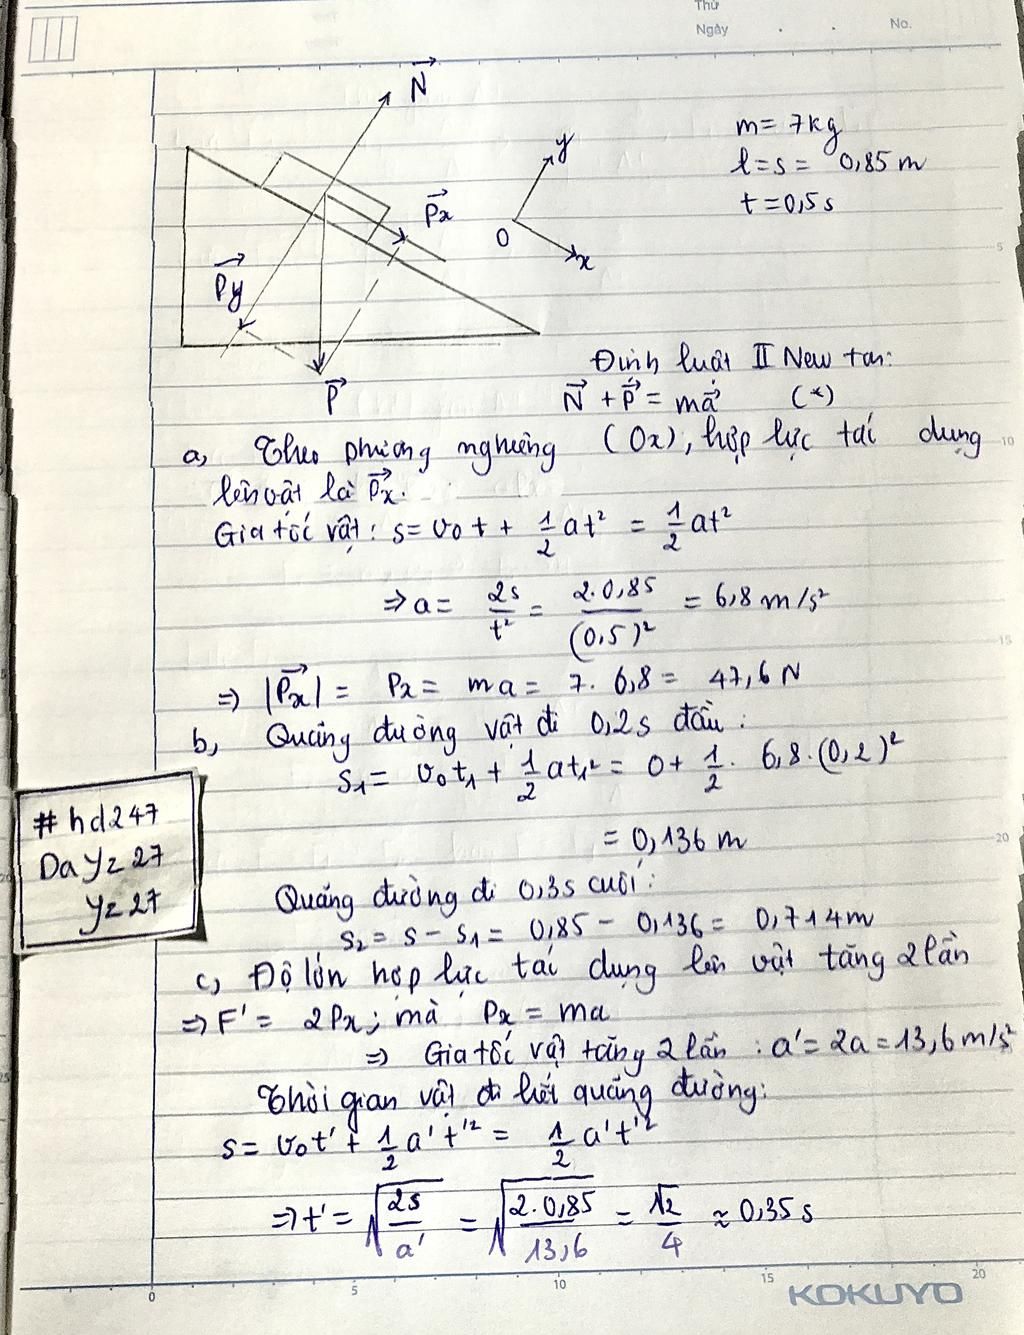 Thứ
Ngày . . No.
N⃗
y
m = 7kg
l = s = 0,85 m
P⃗x
t = 0,5 s
O
x
P⃗y
Định luật II New tan:
P⃗
N⃗ + P⃗ = ma⃗ (*)
a, Theo phương nghiêng (Ox), hợp lực tác dụng
lên vật là P⃗x.
Gia tốc vật: s = v₀t + 1/2 at² = 1/2 at²
⇒ a = 2s/t² = 2.0,85/(0,5)² = 6,8 m/s²
⇒ |P⃗x| = Px = ma = 7. 6,8 = 47,6 N
b, Quãng đường vật đi 0,2s đầu:
s₁ = v₀t₁ + 1/2 at₁² = 0 + 1/2 . 6,8.(0,2)²
= 0,136 m
#hd247
DaYz27
yz27
Quãng đường đi 0,3s cuối:
s₂ = s - s₁ = 0,85 - 0,136 = 0,714m
c, Độ lớn hợp lực tác dụng lên vật tăng 2 lần
⇒ F' = 2Px; mà Px = ma
⇒ Gia tốc vật tăng 2 lần : a' = 2a = 13,6 m/s²
Thời gian vật đi hết quãng đường:
s = v₀t' + 1/2 a't'² = 1/2 a't'²
⇒ t' = √(2s/a') = √(2.0,85/13,6) = √2/4 ≈ 0,35 s
0 5 10 15 20
KOKUYO